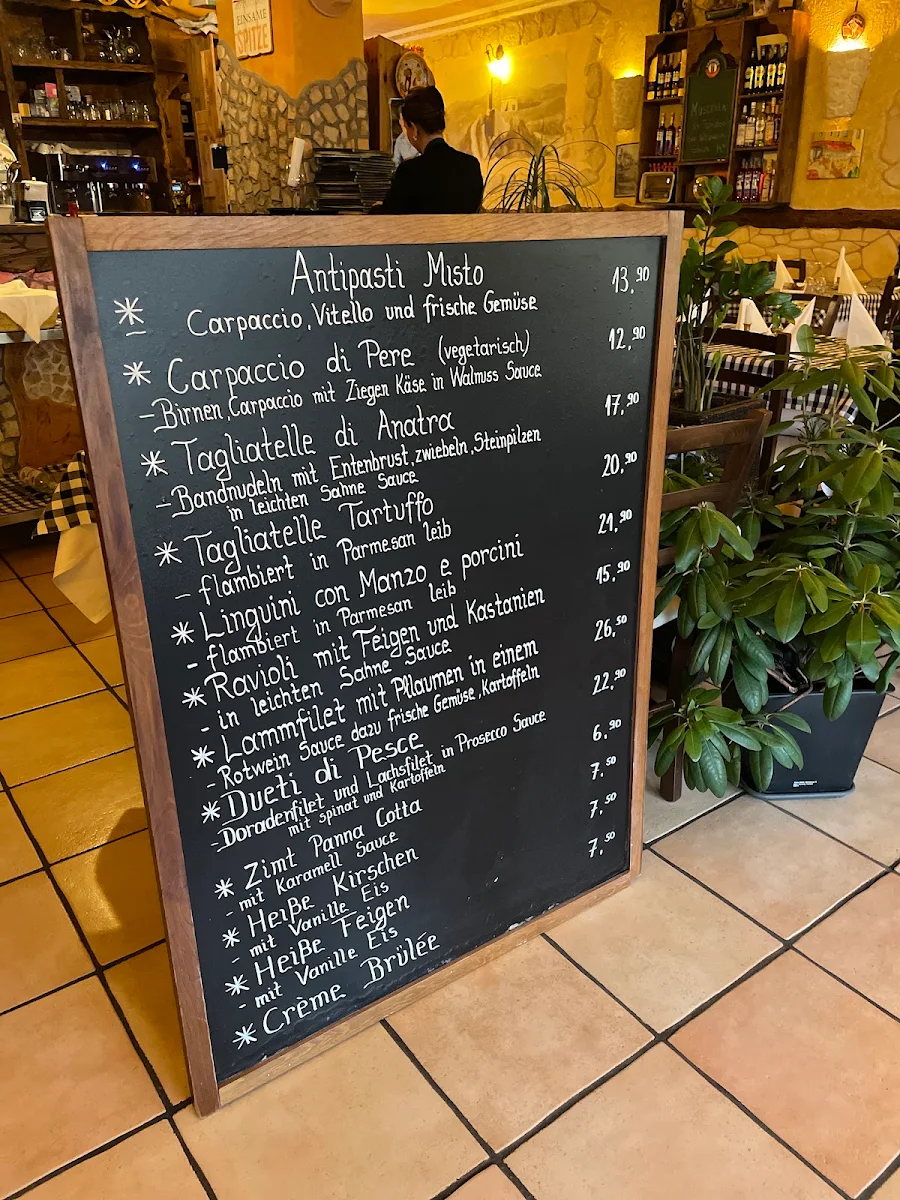 EINSAME
SPITZE
Antipasti Misto 13,90
Carpaccio, Vitello und frische Gemüse
Carpaccio di Pere (vegetarisch) 12,90
-Birnen, Carpaccio mit Ziegen Käse in Walmuss Sauce
Tagliatelle di Anatra 17,90
-Bandnudeln mit Entenbrust, zwiebeln, Steinpilzen
in leichten Sahne Sauce
Tagliatelle Tartuffo 20,90
- flambiert in Parmesan leib
Linguini con Manzo e porcini 21,90
- flambiert in Parmesan leib
Ravioli mit Feigen und Kastanien 15,90
- in leichten Sahne Sauce
Lammfilet mit Pflaumen in einem 26,50
-Rotwein Sauce dazu frische Gemüse, Kartoffeln
Dueti di Pesce 22,90
-Doradenfilet und Lachsfilet in Prosecco Sauce
mit spinat und Kartoffeln
Zimt Panna Cotta 6,90
- mit Karamell Sauce
Heiße Kirschen 7,50
- mit Vanille Eis
Heiße Feigen 7,50
- mit Vanille Eis
Crème Brûlée 7,50